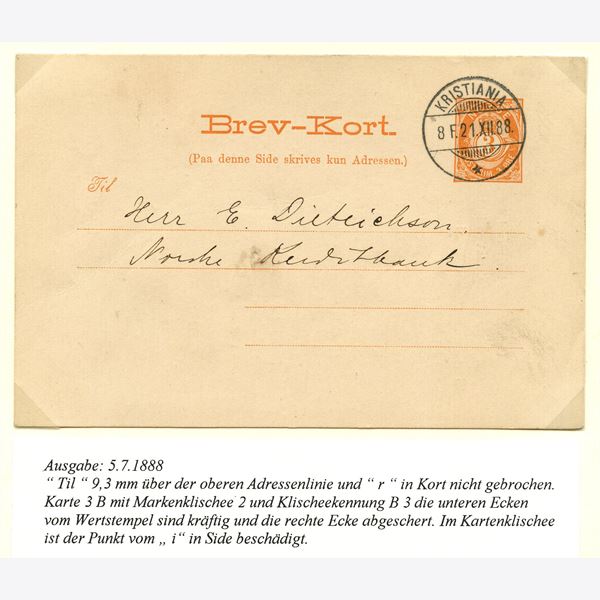 Brev-Kort.
(Paa denne Side skrives kun Adressen.)
KRISTIANIA
8 F. 21.XII.88.
3
Til
Herr E. Dietrichson.
Norske Kreditbank.
Ausgabe: 5.7.1888
“ Til “ 9,3 mm über der oberen Adressenlinie und “ r “ in Kort nicht gebrochen.
Karte 3 B mit Markenklischee 2 und Klischeekennung B 3 die unteren Ecken
vom Wertstempel sind kräftig und die rechte Ecke abgeschert. Im Kartenklischee
ist der Punkt vom „ i“ in Side beschädigt.